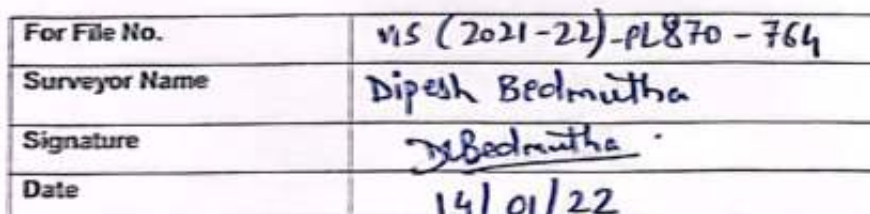 For File No. VIS (2021-22)-PL870-764
Surveyor Name Dipesh Bedmutha
Signature DBedmutha
Date 14/01/22